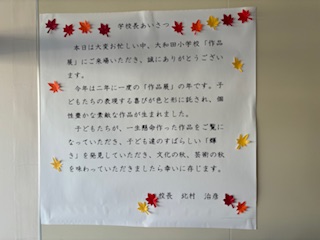 学校長あいさつ
本日は大変お忙しい中、大和田小学校「作品
展」にご来場いただき、誠にありがとうござい
ます。
今年は二年に一度の「作品展」の年です。子
どもたちの表現する喜びが色と形に託され、個
性豊かな素敵な作品が生まれました。
子どもたちが、一生懸命作った作品をご覧に
なっていただき、子ども達のすばらしい「輝
き」を発見していただき、文化の秋、芸術の秋
を味わっていただきましたら幸いに存じます。
校長 北村 治彦